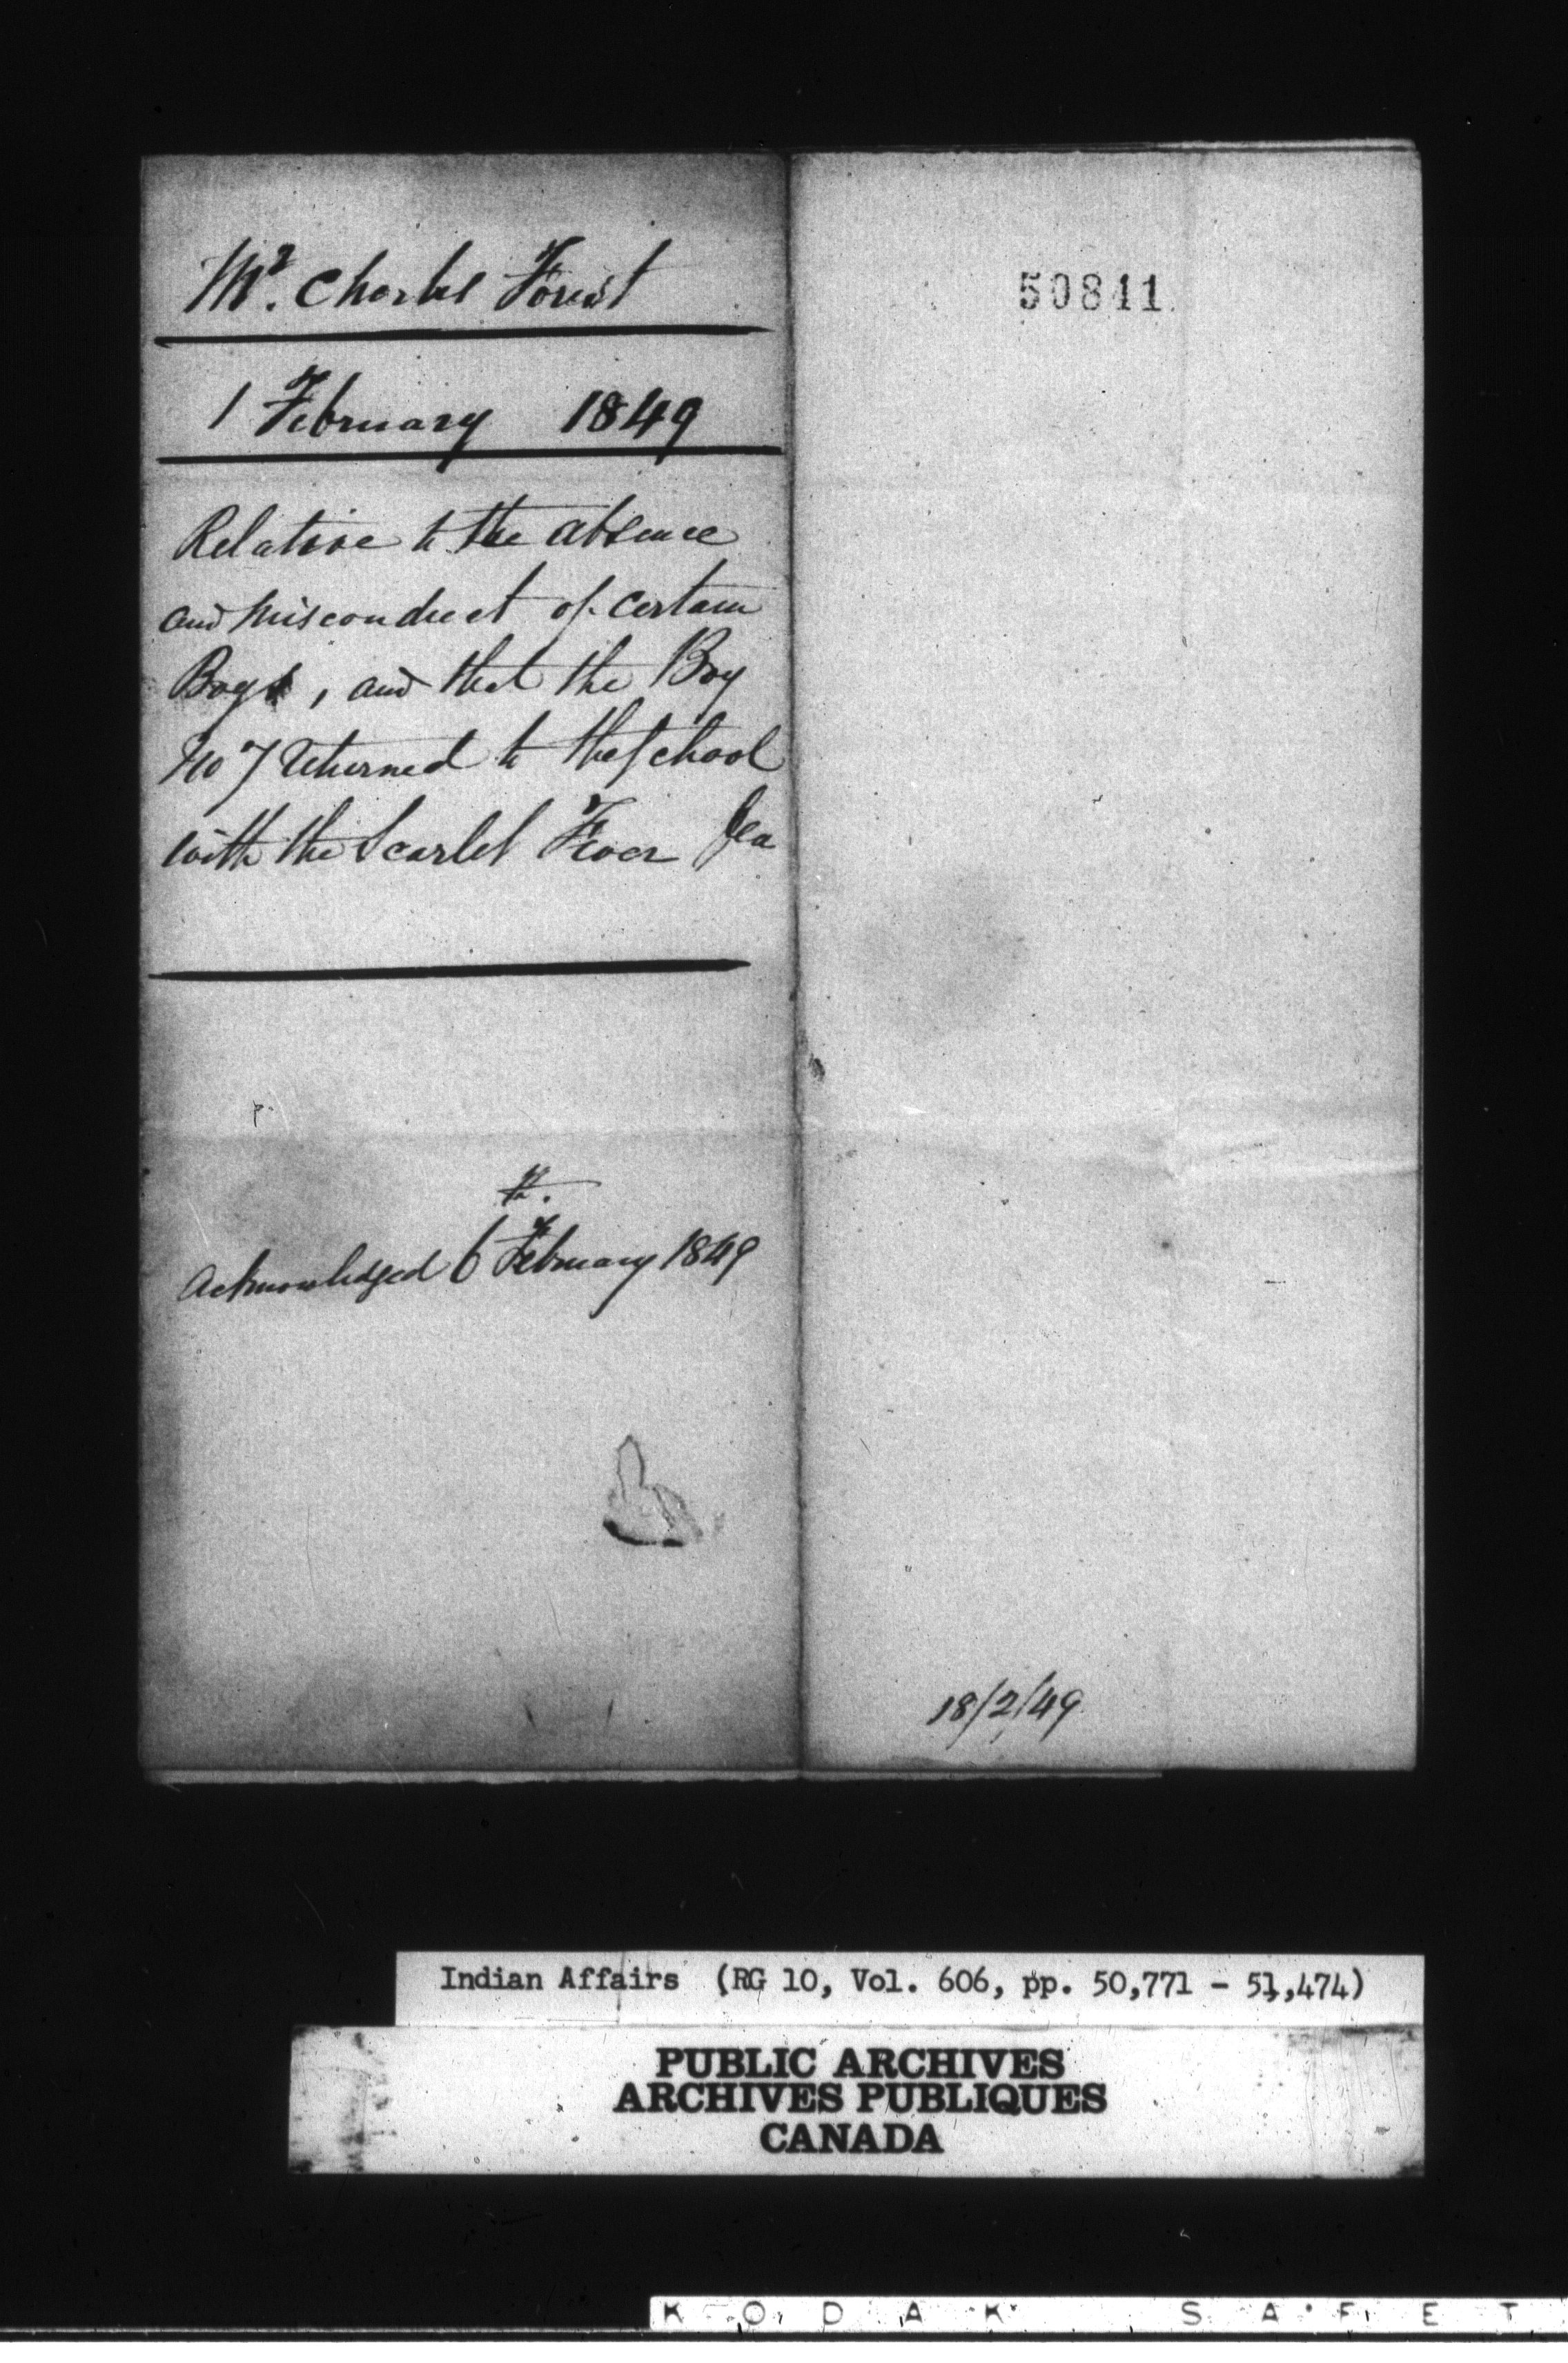 Mr. Charles Forest
1 February 1849
Relative to the absence
and misconduct of certain
Boys, and that the Boy
No 7 returned to the School
with the Scarlet Fever &ca
Acknowledged 6 February 1849
50841
18/2/49
Indian Affairs (RG 10, Vol. 606, pp. 50,771 - 51,474)
PUBLIC ARCHIVES
ARCHIVES PUBLIQUES
CANADA
KODAK SAFET